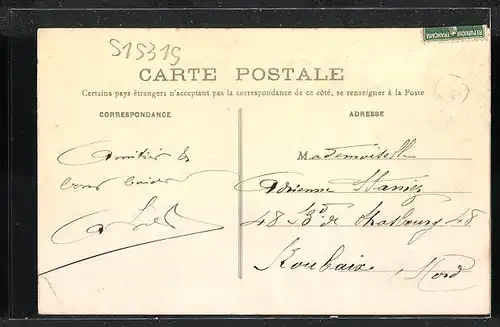 515315
REPUBLIQUE FRANÇAISE
CARTE POSTALE
Certains pays étrangers n'acceptant pas la correspondance de ce côté, se renseigner à la Poste
CORRESPONDANCE
ADRESSE
Amitiés &
bons baisers
Mademoiselle
Adrienne
48 Bd de Strasbourg 48
Roubaix, Nord